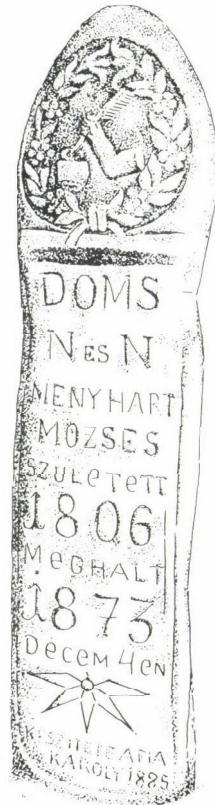 DOMS
N ES N
MENYHART
MÓZSES
SZÜLETETT
1806
MEGHALT
1873
DECEM 4EN
KESZITETTE AFIA
KAROLY 1885